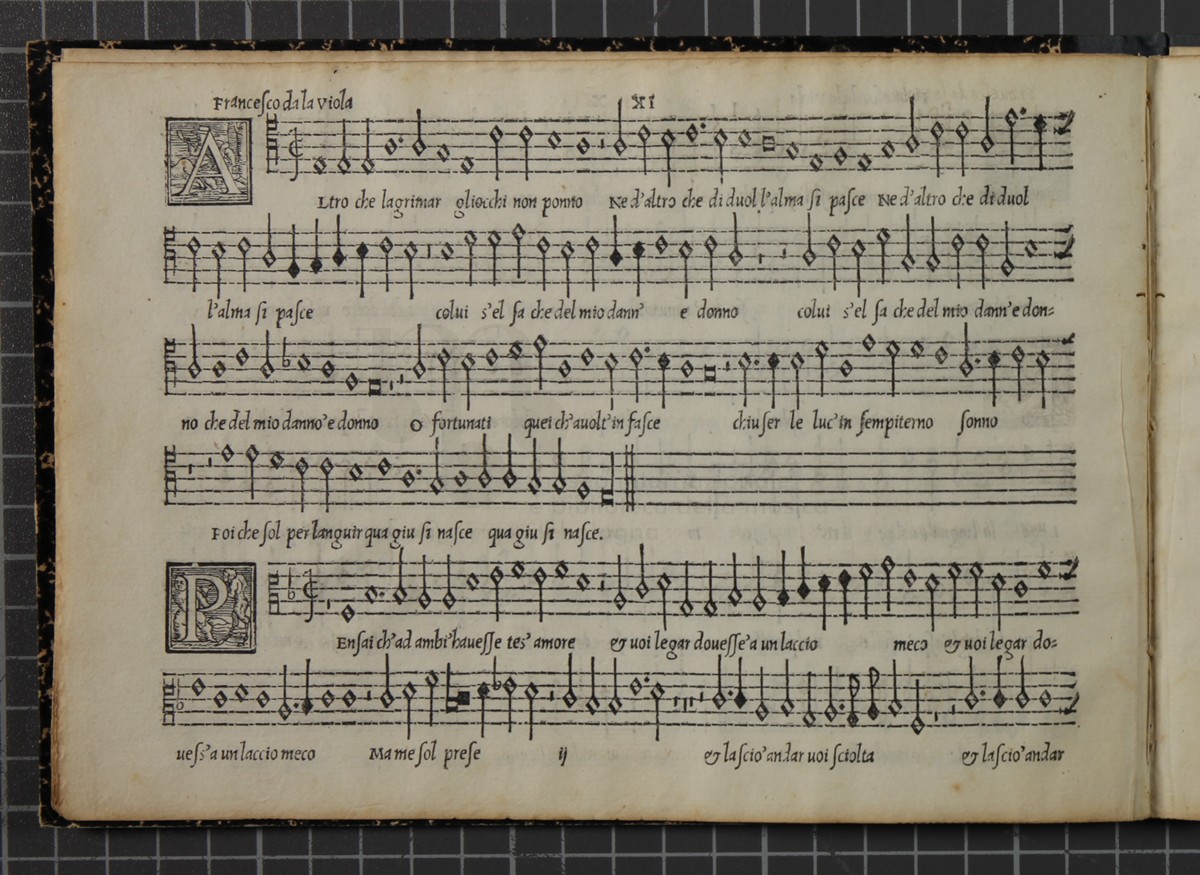 Franceſco da la viola XI
ALtro che lagrimar gliocchi non ponno Ne d'altro che di duol l'alma ſi paſce Ne d'altro che di duol
l'alma ſi paſce colui s'el ſa che del mio dann' e donno colui s'el ſa che del mio dann'e don-
no che del mio danno'e donno O fortunati quei ch'auolt'in faſce chiuſer le luc'in ſempiterno ſonno
Poi che ſol per languir qua giu ſi naſce qua giu ſi naſce.
PEnſai ch'ad ambi'haueſſe teſ' amore & uoi legar doueſſe'a un laccio meco & uoi legar do-
ueſs'a un laccio meco Ma me ſol preſe ij & laſcio'andar uoi ſciolta & laſcio'andar